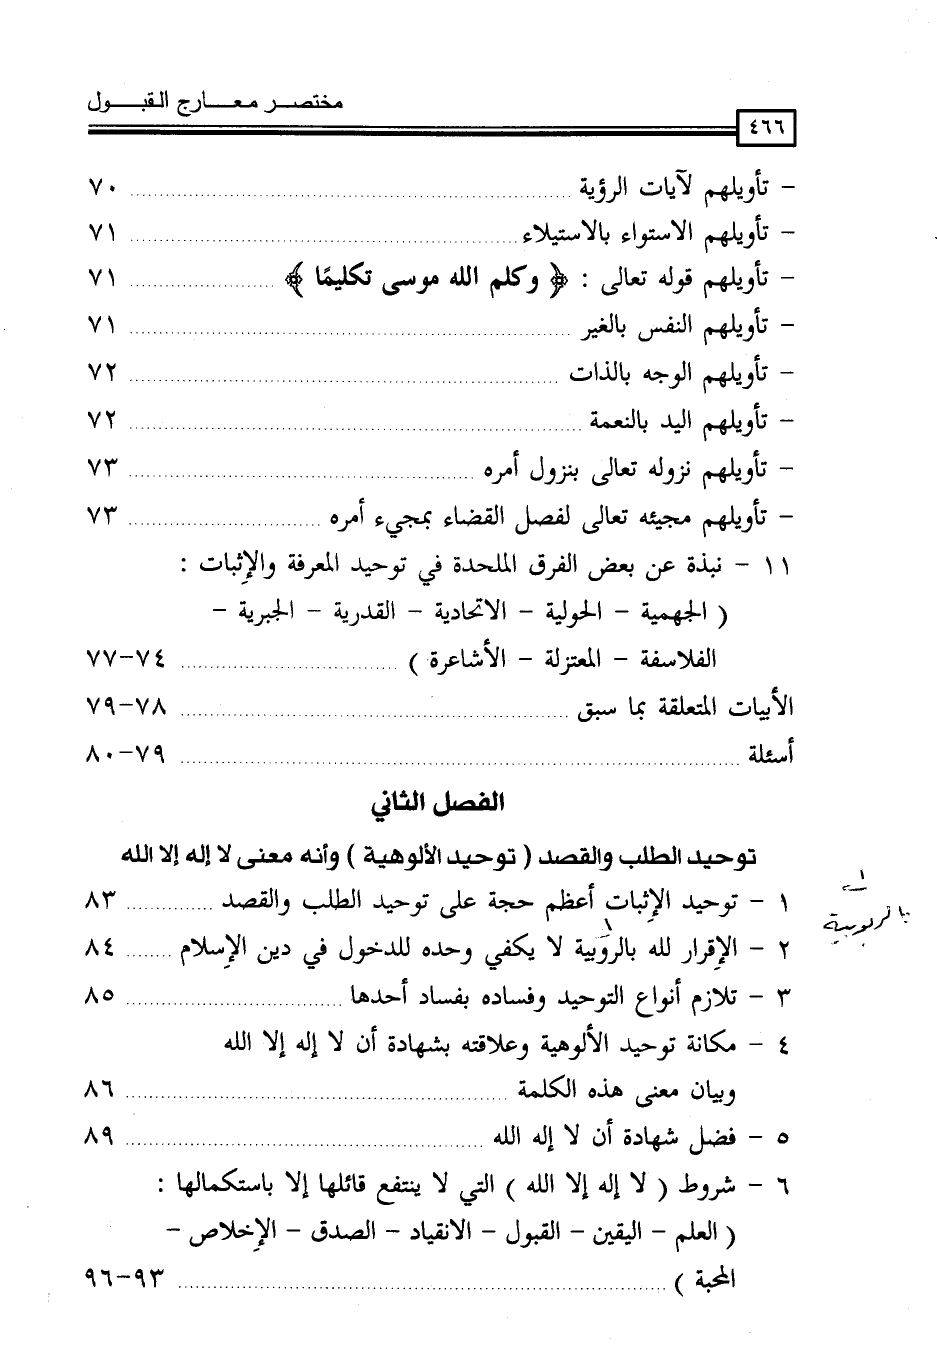 مختصر معارج القبول
٤٦٦
- تأويلهم لآيات الرؤية ................ ٧٠
- تأويلهم الاستواء بالاستيلاء ................ ٧١
- تأويلهم قوله تعالى : ﴿ وكلم الله موسى تكليمًا ﴾ ................ ٧١
- تأويلهم النفس بالغير ................ ٧١
- تأويلهم الوجه بالذات ................ ٧٢
- تأويلهم اليد بالنعمة ................ ٧٢
- تأويلهم نزوله تعالى بنزول أمره ................ ٧٣
- تأويلهم مجيئه تعالى لفصل القضاء بمجيء أمره ................ ٧٣
١١ - نبذة عن بعض الفرق الملحدة في توحيد المعرفة والإثبات :
( الجهمية - الحولية - الاتحادية - القدرية - الجبرية -
الفلاسفة - المعتزلة - الأشاعرة ) ................ ٧٤-٧٧
الأبيات المتعلقة بما سبق ................ ٧٨-٧٩
أسئلة ................ ٧٩-٨٠
الفصل الثاني
توحيد الطلب والقصد ( توحيد الألوهية ) وأنه معنى لا إله إلا الله
١ - توحيد الإثبات أعظم حجة على توحيد الطلب والقصد ................ ٨٣
٢ - الإقرار لله بالروبية لا يكفي وحده للدخول في دين الإسلام ........ ٨٤
بالربوبية
٣ - تلازم أنواع التوحيد وفساده بفساد أحدها ................ ٨٥
٤ - مكانة توحيد الألوهية وعلاقته بشهادة أن لا إله إلا الله
وبيان معنى هذه الكلمة ................ ٨٦
٥ - فضل شهادة أن لا إله الله ................ ٨٩
٦ - شروط ( لا إله إلا الله ) التي لا ينتفع قائلها إلا باستكمالها :
( العلم - اليقين - القبول - الانقياد - الصدق - الإخلاص -
المحبة ) ................ ٩٣-٩٦